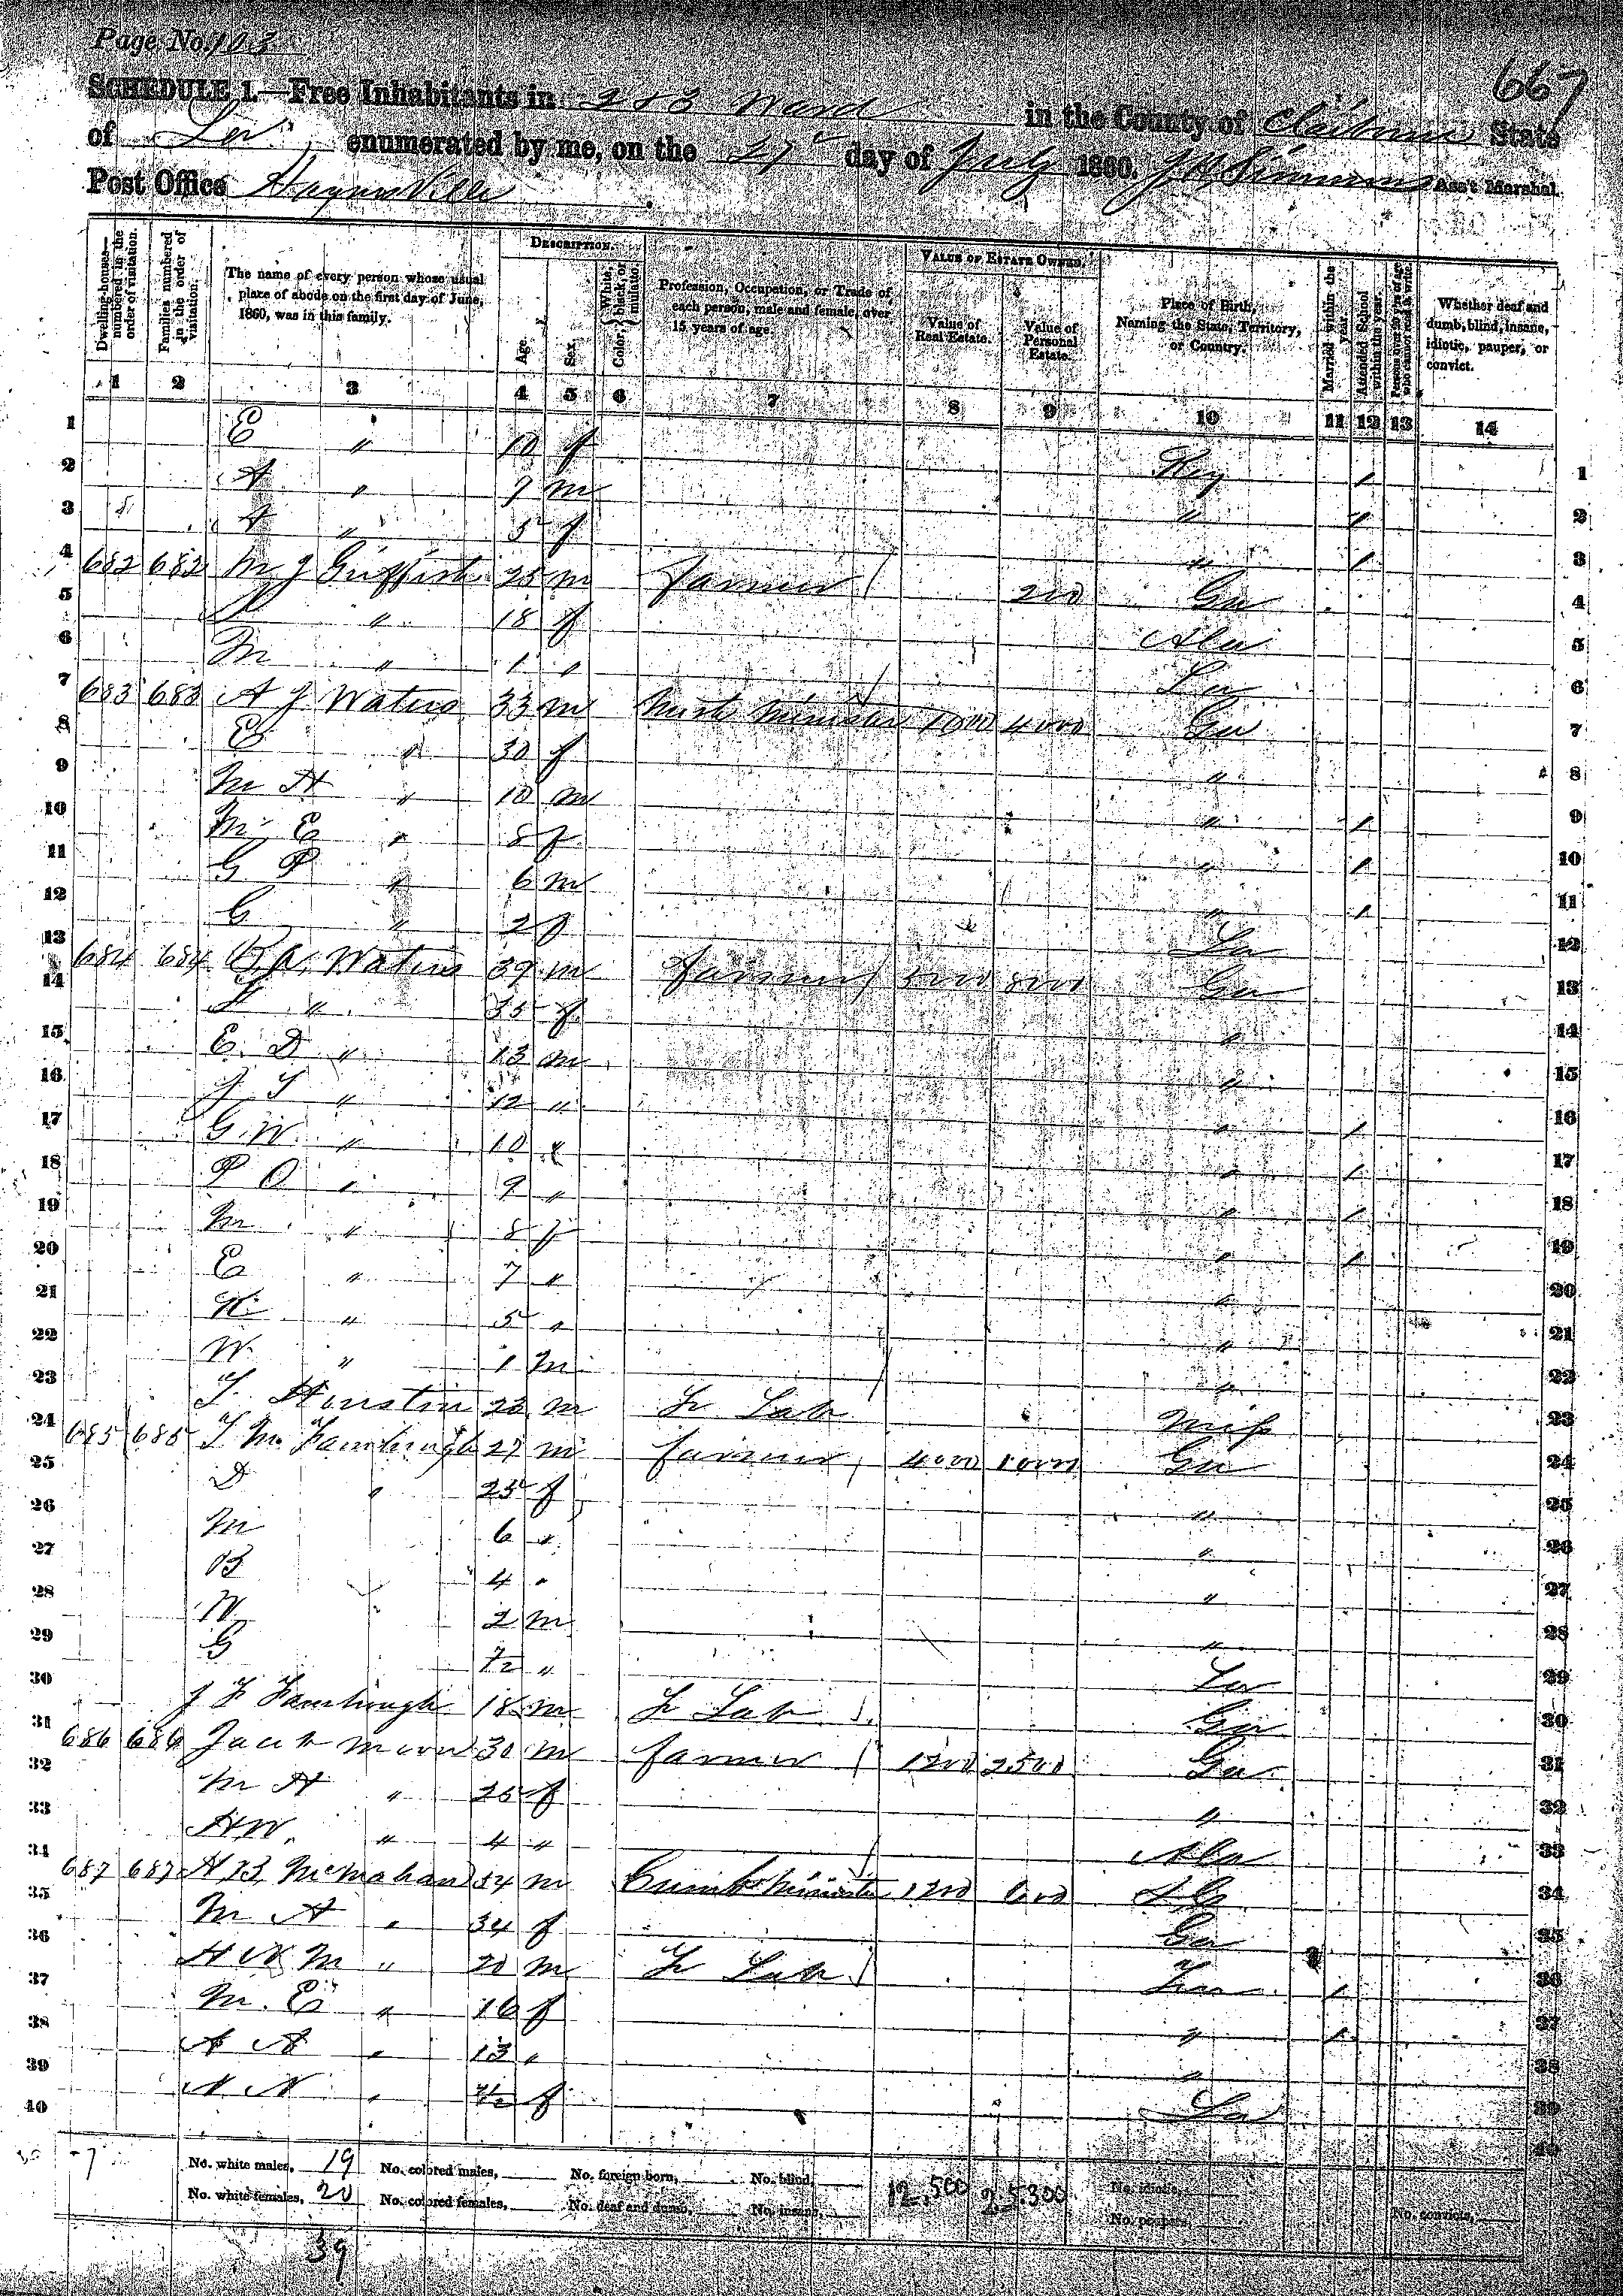 Page No. 103
667
SCHEDULE 1.—Free Inhabitants in 2d & 3 Ward in the County of Claiborne State
of La enumerated by me, on the 27 day of July 1860. J H Simmons Ass't Marshal.
Post Office Haynesville
Dwelling-houses—numbered in the order of visitation. Families numbered in the order of visitation. The name of every person whose usual place of abode on the first day of June, 1860, was in this family. DESCRIPTION. Age. Sex. Color, White, black, or mulatto. Profession, Occupation, or Trade of each person, male and female, over 15 years of age. VALUE OF ESTATE OWNED. Value of Real Estate. Value of Personal Estate. Place of Birth, Naming the State, Territory, or Country. Married within the year. Attended School within the year. Persons over 20 y'rs of age who cannot read & write. Whether deaf and dumb, blind, insane, idiotic, pauper, or convict.
1 2 3 4 5 6 7 8 9 10 11 12 13 14
1 E " 10 f Ky / 1
2 A " 7 m " / 2
3 " 5 f " / 3
4 682 682 M J Griffith 25 m Farmer 200 Ga 4
5 " 18 f Ala 5
6 M " 1 " La 6
7 683 683 A J Waters 33 m Minister 1000 4000 Ga 7
8 E " 30 f " 8
9 M H " 10 m " / 9
10 M E " 8 f " / 10
11 G P " 6 m " / 11
12 C " 2 f La 12
13 684 684 Waters 39 m Farmer 5000 8000 Ga 13
14 " 35 f " 14
15 E D " 13 m " 15
16 J T " 12 " " / 16
17 G W " 10 " " / 17
18 P O " 9 " " / 18
19 M " 8 f " / 19
20 E " 7 " " 20
21 " 5 " " 21
22 W " 1 m " 22
23 T Hinstin 23 m Lab Miss 23
24 685 685 T M Fambrough 27 m Farmer 4000 10000 Ga 24
25 D " 25 f " 25
26 M 6 " " 26
27 B 4 " " 27
28 W 2 m " 28
29 G " La 29
30 J F Fambrough 18 m Lab Ga 30
31 686 686 Jacob 30 m Farmer 1200 2500 Ga 31
32 M A " 25 f " 32
33 H W " 4 " Ala 33
34 687 687 H B McMahan 54 m Minister 1200 600 34
35 M A " 34 f Ga 35
36 H M " 20 m Lab / 36
37 M. E " 16 f " / 37
38 A A " 13 " " 38
39 " f La 39
40 40
No. white males, 19 No. colored males, No. foreign born, No. blind, 12,500 25,300 No. idiotic, No. convicts,
No. white females, 20 No. colored females, No. deaf and dumb, No. insane, No. paupers,
39